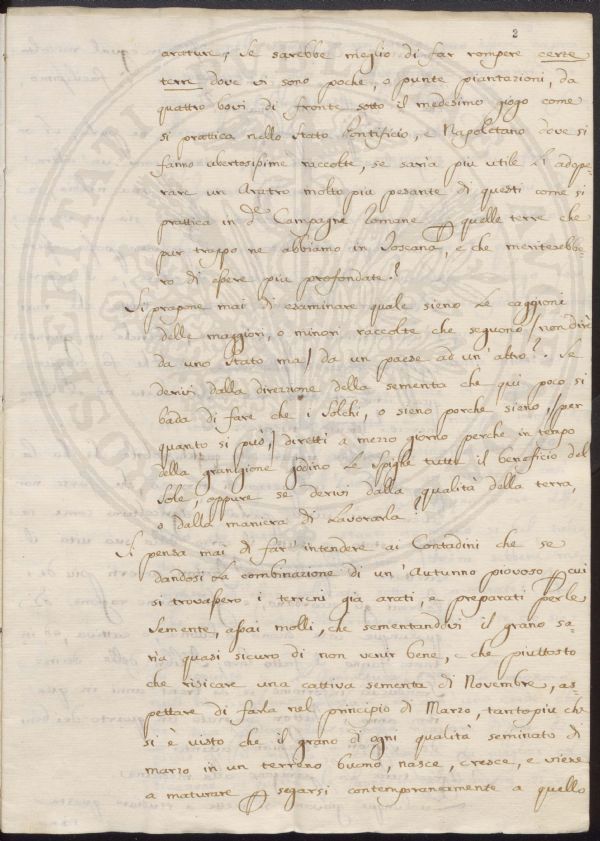 2
arature, se sarebbe meglio di far rompere certe
terre dove vi sono poche, o punte piantazioni, da
quattro bovi di fronte sotto il medesimo giogo come
si prattica nello stato Pontificio, e Napoletano dove si
fanno ubertosissime raccolte, se saria piu utile di adope=
rare un Aratro molto piu pesante di questi come si
prattica in de Campagne Romane quelle terre che
pur troppo ne abbiamo in Toscana, e che meriterebbe=
ro di essere piu profondate?
Si propone mai di esaminare quale sieno le caggioni
delle maggiori, o minori raccolte che seguono / non dirò
da uno stato ma / da un paese ad un' altro? Se
derivi dalla direzzione della sementa che qui poco si
bada di fare che i solchi, o sieno porche sieno / per
quanto si può / diretti a mezzo giorno perche in tempo
della granigione godino le spighe tutte il beneficio del
sole, oppure se derivi dalla qualità della terra,
o dalla maniera di lavorarla?
Si pensa mai di far' intendere ai Contadini che se
dandosi la combinazione di un' Autunno piovoso cui
si trovassero i terreni gia arati, e preparati per le
semente, assai molli, che sementandovi il grano sa=
ria quasi sicuro di non venir bene, e che piuttosto
che risicare una cattiva sementa di Novembre, as=
pettare di farla nel principio di Marzo, tantopiu che
si è visto che il grano di ogni qualità seminato di
marzo in un terreno buono, nasce, cresce, e viene
a maturare segarsi contemporaneamente a quello